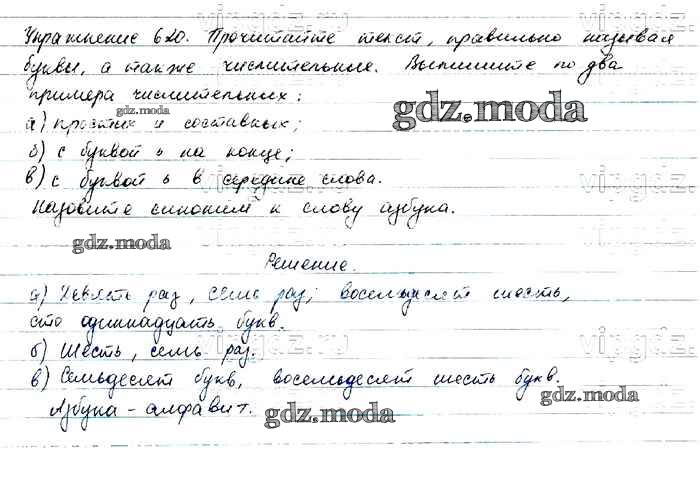 Упражнение 620. Прочитайте текст, правильно называя
буквы, а также числительные. Выпишите по два
примера числительных:
а) простых и составных;
б) с буквой ь на конце;
в) с буквой ь в середине слова.
Назовите синоним к слову азбука.
Решение.
а) Девять раз, семь раз; восемьдесят шесть,
сто одиннадцать букв.
б) Шесть, семь раз.
в) Семьдесят букв, восемьдесят шесть букв.
Азбука – алфавит.
gdz.moda
gdz.moda
gdz.moda
gdz.moda
gdz.moda
vipgdz.ru
vipgdz.ru